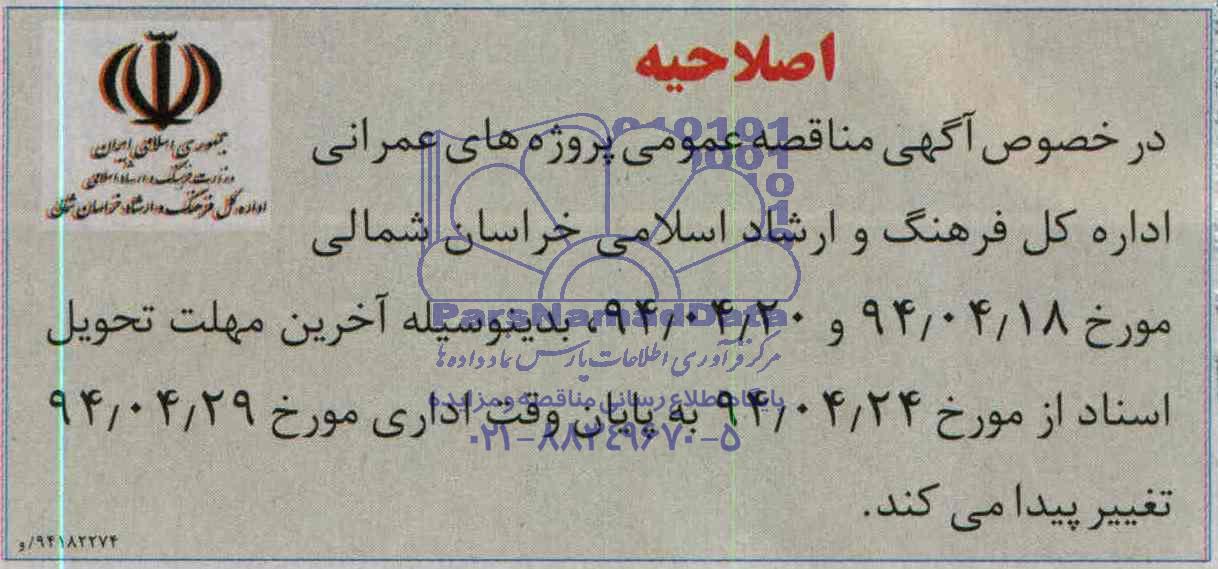 اصلاحیه
جمهوری اسلامی ایران
وزارت فرهنگ و ارشاد اسلامی
اداره کل فرهنگ و ارشاد خراسان شمالی
در خصوص آگهی مناقصه عمومی پروژه های عمرانی
اداره کل فرهنگ و ارشاد اسلامی خراسان شمالی
مورخ ۹۴/۰۴/۱۸ و ۹۴/۰۴/۲۰، بدینوسیله آخرین مهلت تحویل
اسناد از مورخ ۹۴/۰۴/۲۴ به پایان وقت اداری مورخ ۹۴/۰۴/۲۹
تغییر پیدا می کند.
۹۴۱۸۲۲۷۴/و
ParsNamadData
مرکز فرآوری اطلاعات پارس نماد داده ها
پایگاه اطلاع رسانی مناقصه و مزایده
۰۲۱-۸۸۳۴۹۶۷۰-۵